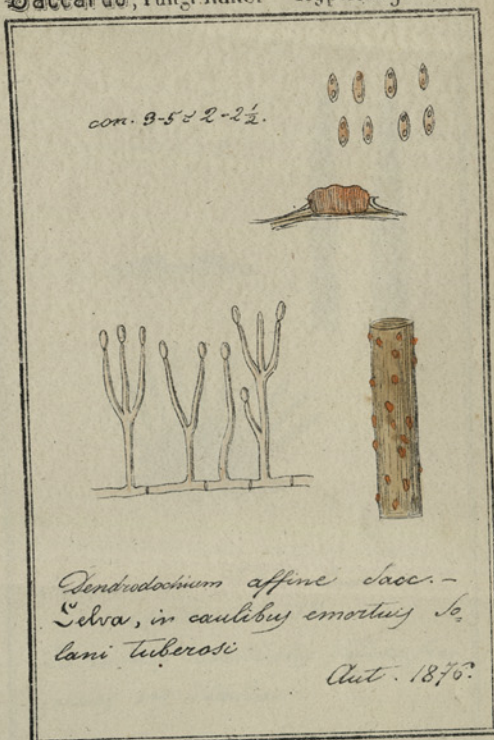 Saccardo, Fungi
con. 3-5 ≈ 2-2½.
Dendrodochium affine Sacc. –
Selva, in caulibus emortuis So-
lani tuberosi
Aut. 1876.